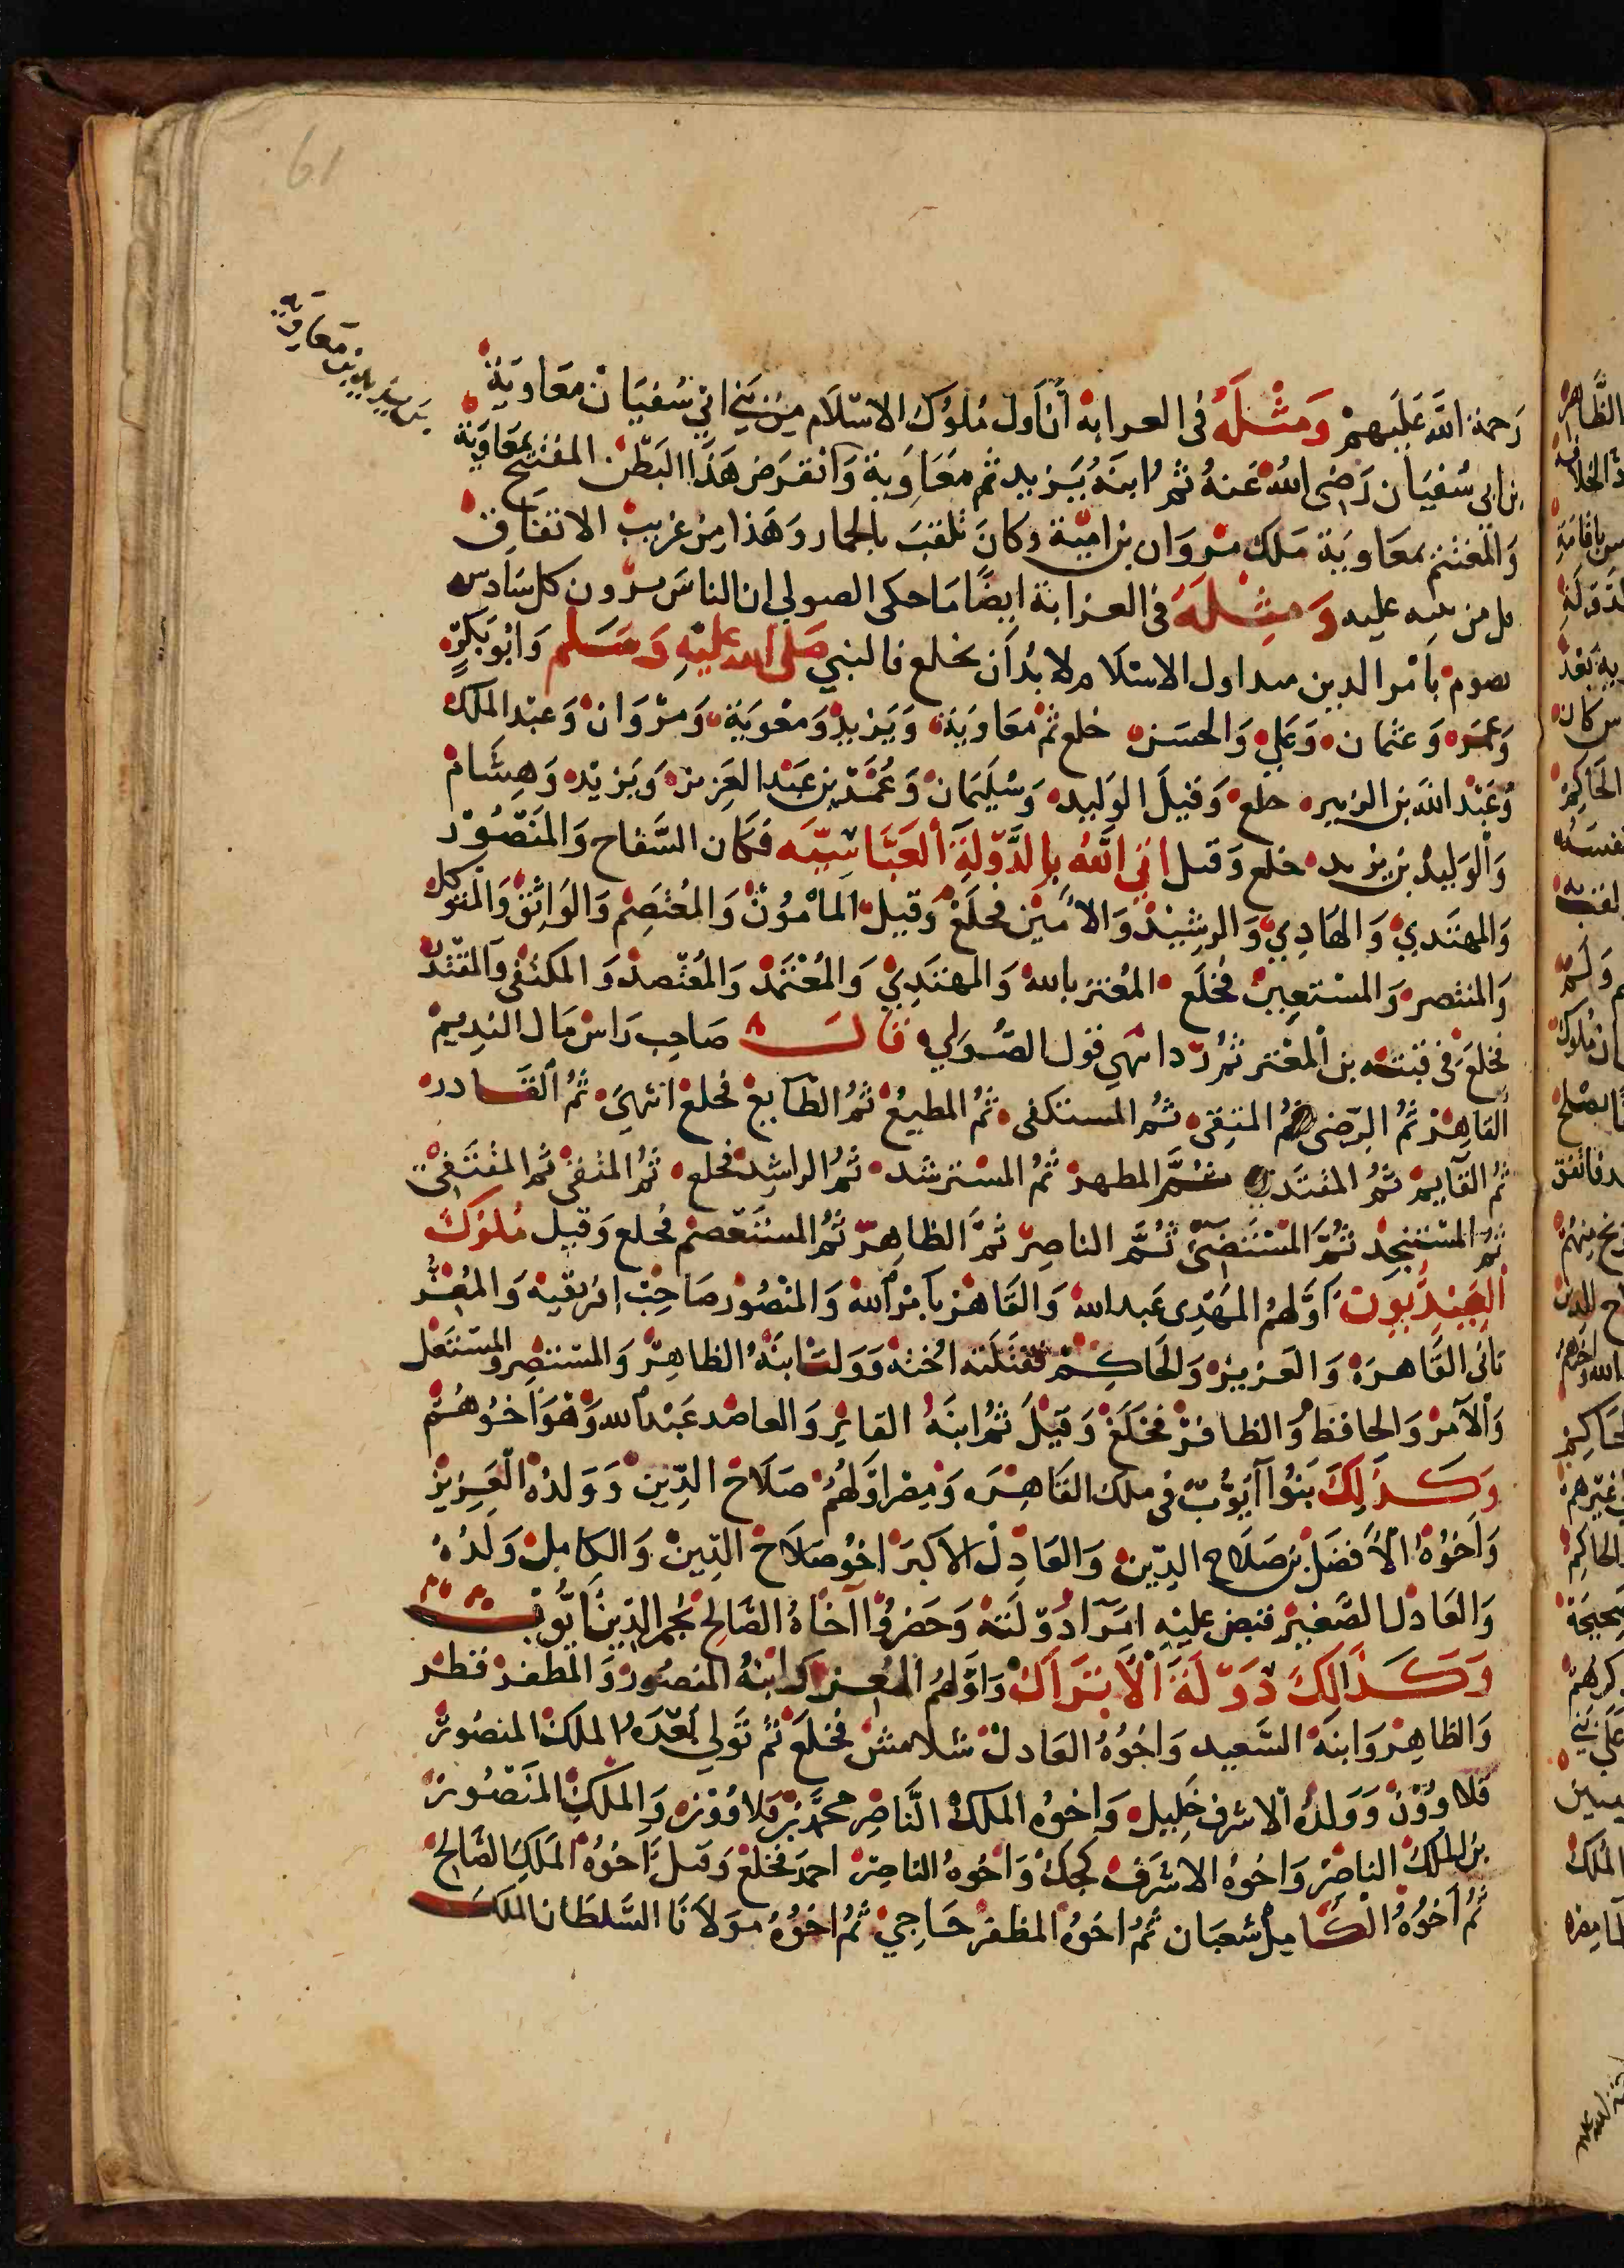 61
بن يزيد بن معاوية
رَحمة الله عَلَيهمْ وَمثْلَهُ فى العرابة أن أول مُلوُك الاسْلَام مِن بَنِي ابِي سُفيَان معَاويَة
بن ابى سُفيَان رَضى اللهُ عَنهُ ثمُ ابنهُ يَزيد ثم معَاوِية وَانقرَض هَذَا البَطن المفتتح بمعَاويَة
وَالمختتم بمعَاويَة مَلك مروَان بن اميّة وكانَ يلقبَ بالحمار وَهَذا مِن غرَيبْ الاتفَاق
قل من ينبه عليه وَمِثْلَهُ فى العرابة ايضًا مَا حكى الصولي ان الناسَ يرون كل سَادس
يقوم بأمْر الدين من اول الاسْلَام لا بُد أن يخلع فالنبي صَلى الله عليْهِ وَسَلم وَابُو بَكرٍ
وَعُمَر وَعثمان وَعَلي وَالحسَن خلع ثم معَاويَة وَيَزيد وَمعٰويَة وَمرْوَان وَعبْد الملك
وَعَبْد الله بن الزبير خلع وَقتِلَ الوَليد وَسُليَمَان وَعُمَر بن عَبد العَزيز وَيَزيْد وَهِشَام
وَالْوَليدُ بن يزيد خلع وَقتل اتي اللهُ بِالدَّوْلَةِ العَبَّاسِيّه فكان السَّفاح وَالمَنصُوْر
وَالمهتَدي وَالهَادِي وَالرشِيْد وَالامِيْن فخلَعْ وَقتِل المأمُوْن وَالمُعْتَصِم وَالوَاثِق وَالمتوكل
وَالمنتصر وَالمسْتعِين فخلَع المعْتز بالله وَالمهتدِي وَالمُعْتَمَد وَالمُعْتضد وَالمكتفى وَالمقتدر
فخلَعَ فى فتنة بن المعْتز ثمُ رُدّ انتهي قول الصُولي قالـــــ صَاحِب رَاسْ مَال النديم
القاهِرْ ثمُ الرّضى ثمُ المتقِى ثمُ المستكفى ثمُ المطيعُ ثمُ الطَايع فخلع انتهيَ ثمُ القَادر
ثمُ القَايم ثمُ المقتَدى ثمُ المطهر ثمُ المسْترشد ثمُ الراشِد فخلع ثمُ المتقى ثم المقتَفى
ثمُ المسْتنجد ثمُ المسْتَضئ ثمُ الناصِر ثمُ الظاهِر ثمُ المستَعْصم فخلع وَقتِل مُلوُكَ
العُبَيْديّون أوَّلهُم المهَدِى عَبد الله وَالقَاهرْ بأمْر الله وَالمنصُور صَاحِبْ افريقيه وَالمُعزّ
بَانى القَاهرَة وَالعَزيز وَالحَاكِمْ فقَتلَته اخْتهُ وَوَلتْ ابنَهُ الظاهِر وَالمسْتنصِر وَالمسْتَعلى
وَالآمر وَالحافظ وَالظافرْ فخَلعَ وَقتِلَ ثمُ ابنَهُ الفايز وَالعاضد عَبْد الله وَهوَ أخوُهُم
وَكـَـذلِكَ بَنُوا أيُوُّبْ فى ملك القَاهِرَه وَمِصْر اوَّلهُم صَلَاح الدِّين وَوَلدُهُ العَزيز
وَأخُوْهُ الْأفضَل بن صَلَاح الدِّين وَالعَادِل الاكبَر اخُو صَلَاح الدِّين وَالكامِل وَلَدُهُ
وَالعَادل الصَّغِير قبض عليْهِ امَرَا دَوْلتَهُ وَحضرُوُا اخَاهُ الصَّالح نجم الدِّين أيُّوب
وَكَـذَالِكَ دَوْلَة الْأتْرَاك وَاوَّلهُم المعُز وابنهُ المنصُور وَالمظفر قطز
وَالظاهِر وَابنَهُ السَّعيد وَاخُوُهُ العَادل شلامش فخلَعَ ثمُ تَولي بَعْدَهُ الملكُ المنصُور
قلاووُن وَوَلدُهُ الاشرف خَلِيل وَاخوُه الملكْ النَّاصِر محمَّد بن قلاوُون وَالملكِ المنَصُور
بن الملكْ الناصِر وَاخُوهُ الاشرَف كجك وَاخُوهُ الناصِر احمدَ فخلع وَقتل وَأخوُهُ الملَكِ الصَّالح
ثمُ أخُوُهُ الْكَامِل شعبَان ثمُ اخُوُهُ المظفر حَاجي ثمُ اخُوُهُ مَوْلَانَا السُّلطَان الملكَ